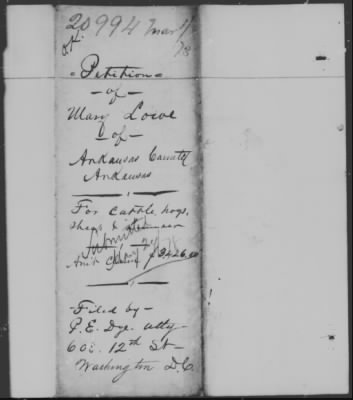 20994 Mar 1/78
Petition
- of -
Mary Lowe
of -
Arkansas County
Arkansas
For cattle, hogs,
sheep &
Amt Claimed $2426.00
- Filed by -
P.E. Dye. Atty
602. 12th St -
Washington D.C.